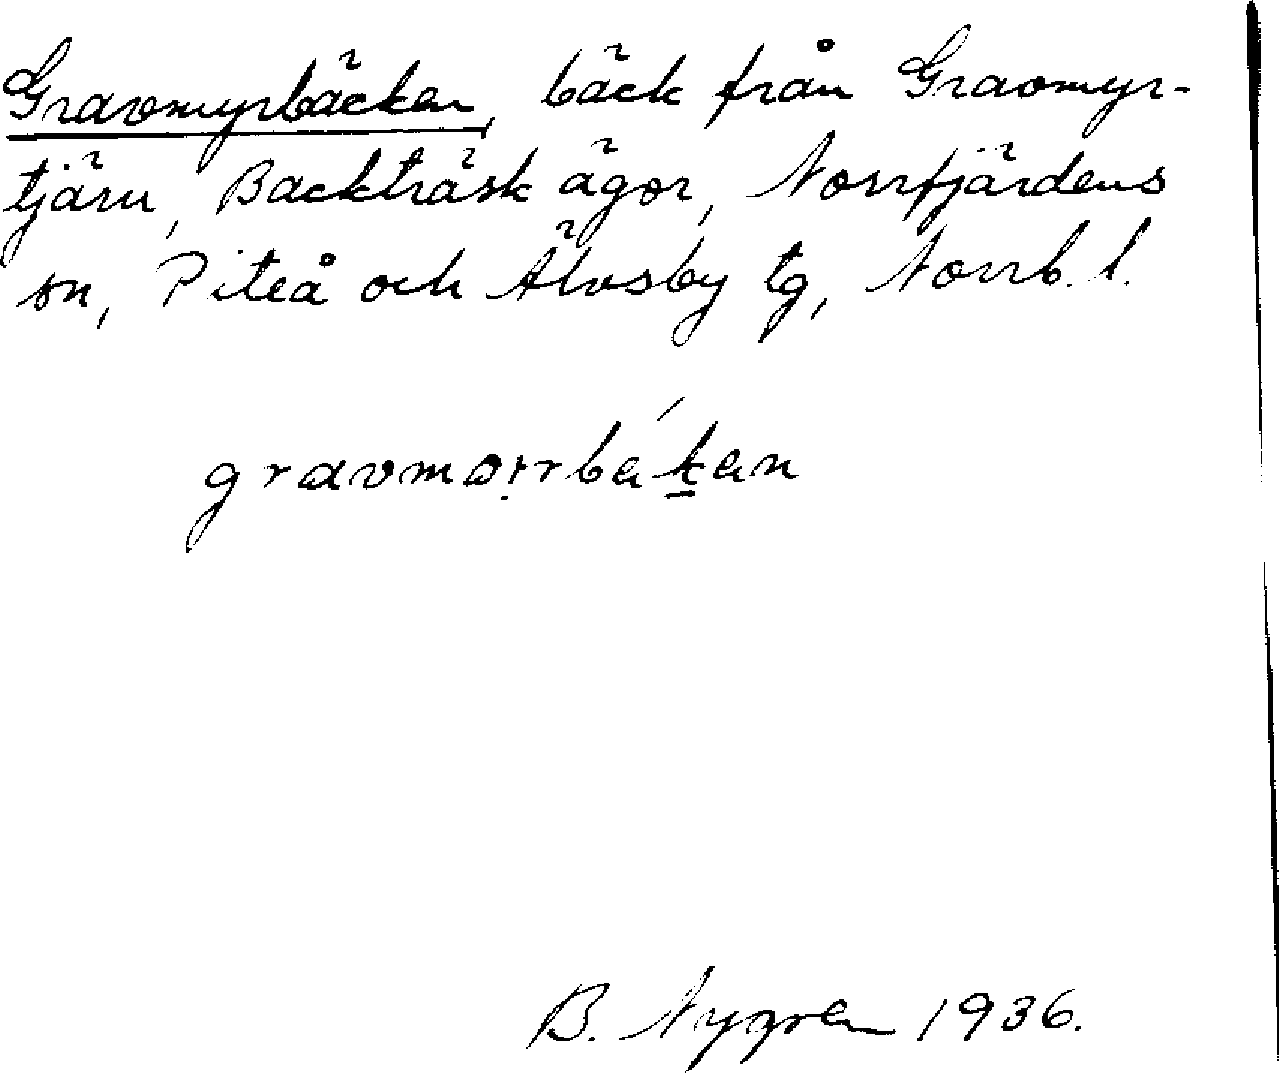 Gravmyrbäcken, bäck från Gravmyr-
tjärn, Backträsk ägor, Norrfjärdens
sn, Piteå och Älvsby tg, Norrb. l.
B. Nygren 1936.